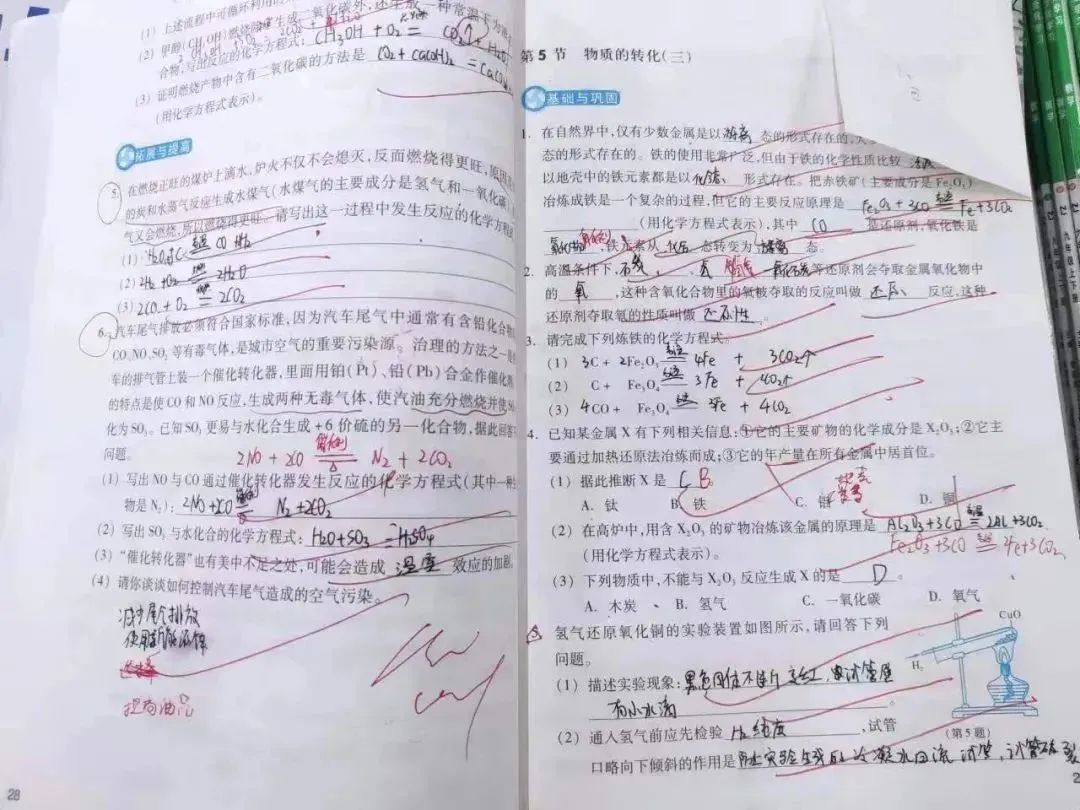 (1) 上述流程中可循环利用的
(2) 甲醇(CH₃OH)燃烧除生成二氧化碳外,还生成一种常温下为液
合物,写出反应的化学方程式: CH₃OH + O₂ = CO₂↑ + H₂O
(3) 证明燃烧产物中含有二氧化碳的方法是 CO₂ + CaOH₂ = CaCO
(用化学方程式表示)。
拓展与提高
5. 在燃烧正旺的煤炉上滴水,炉火不仅不会熄灭,反而燃烧得更旺,原因
的炭和水蒸气反应生成水煤气(水煤气的主要成分是氢气和一氧化碳
气又会燃烧,所以燃烧得更旺。请写出这一过程中发生反应的化学方程
(1) H₂O+C 高温 CO H₂
(2) 2H₂+O₂ = 2H₂O
(3) 2CO+O₂ = 2CO₂
6. 汽车尾气排放必须符合国家标准,因为汽车尾气中通常有含铅化合物
CO、NO、SO₂ 等有毒气体,是城市空气的重要污染源。治理的方法之一是
车的排气管上装一个催化转化器,里面用铂(Pt)、铅(Pb)合金作催化
的特点是使CO和NO反应,生成两种无毒气体,使汽油充分燃烧并使SO
化为SO₃。已知SO₃更易与水化合生成+6价硫的另一化合物,据此回答
问题。
2NO + 2CO 催化剂 △ N₂ + 2CO₂
(1) 写出NO与CO通过催化转化器发生反应的化学方程式(其中一种
物是N₂): 2NO+2CO = N₂+2CO₂
(2) 写出SO₃与水化合的化学方程式: H₂O+SO₃ = H₂SO₄
(3) “催化转化器”也有美中不足之处,可能会造成 温室 效应的加剧
(4) 请你谈谈如何控制汽车尾气造成的空气污染。
减少尾气排放
使用新能源
提高油品
28
第5节 物质的转化(三)
基础与巩固
1. 在自然界中,仅有少数金属是以 游离 态的形式存在的,大
态的形式存在。铁的使用非常广泛,但由于铁的化学性质比较 活泼
以地壳中的铁元素都是以 化合 形式存在。把赤铁矿(主要成分是Fe₂O₃)
冶炼成铁是一个复杂的过程,但它的主要反应原理是 Fe₂O₃ + 3CO 高温 Fe+3CO₂
(用化学方程式表示),其中 CO 是还原剂,氧化铁是
氧化剂,铁元素从 化合 态转变为 游离 态。
2. 高温条件下, 石炭 、 氢 一氧化碳 等还原剂会夺取金属氧化物中
的 氧 ,这种含氧化合物里的氧被夺取的反应叫做 还原 反应,这种
还原剂夺取氧的性质叫做 还原性 。
3. 请完成下列炼铁的化学方程式:
(1) 3C + 2Fe₂O₃ 高温 4Fe + 3CO₂↑
(2) C + Fe₃O₄ 高温 3Fe + CO₂↑
(3) 4CO + Fe₃O₄ 高温 3Fe + 4CO₂
4. 已知某金属X有下列相关信息:①它的主要矿物的化学成分是X₂O₃;②它主
要通过加热还原法冶炼而成;③它的年产量在所有金属中居首位。
(1) 据此推断X是 C B
A. 钛 B. 铁 C. 铝 D. 铜
(2) 在高炉中,用含X₂O₃的矿物冶炼该金属的原理是 Al₂O₃+3CO 高温 2Al+3CO₂
(用化学方程式表示)。 Fe₂O₃+3CO 高温 Fe+3CO₂
(3) 下列物质中,不能与X₂O₃反应生成X的是 D 。
A. 木炭 B. 氢气 C. 一氧化碳 D. 氧气
5. 氢气还原氧化铜的实验装置如图所示,请回答下列
问题。
CuO
H₂
(1) 描述实验现象: 黑色固体不断变红,试管壁
有小水滴
(2) 通入氢气前应先检验 H₂纯度 ,试管
(第5题)
口略向下倾斜的作用是 防止实验生成的冷凝水回流试管,试管破裂